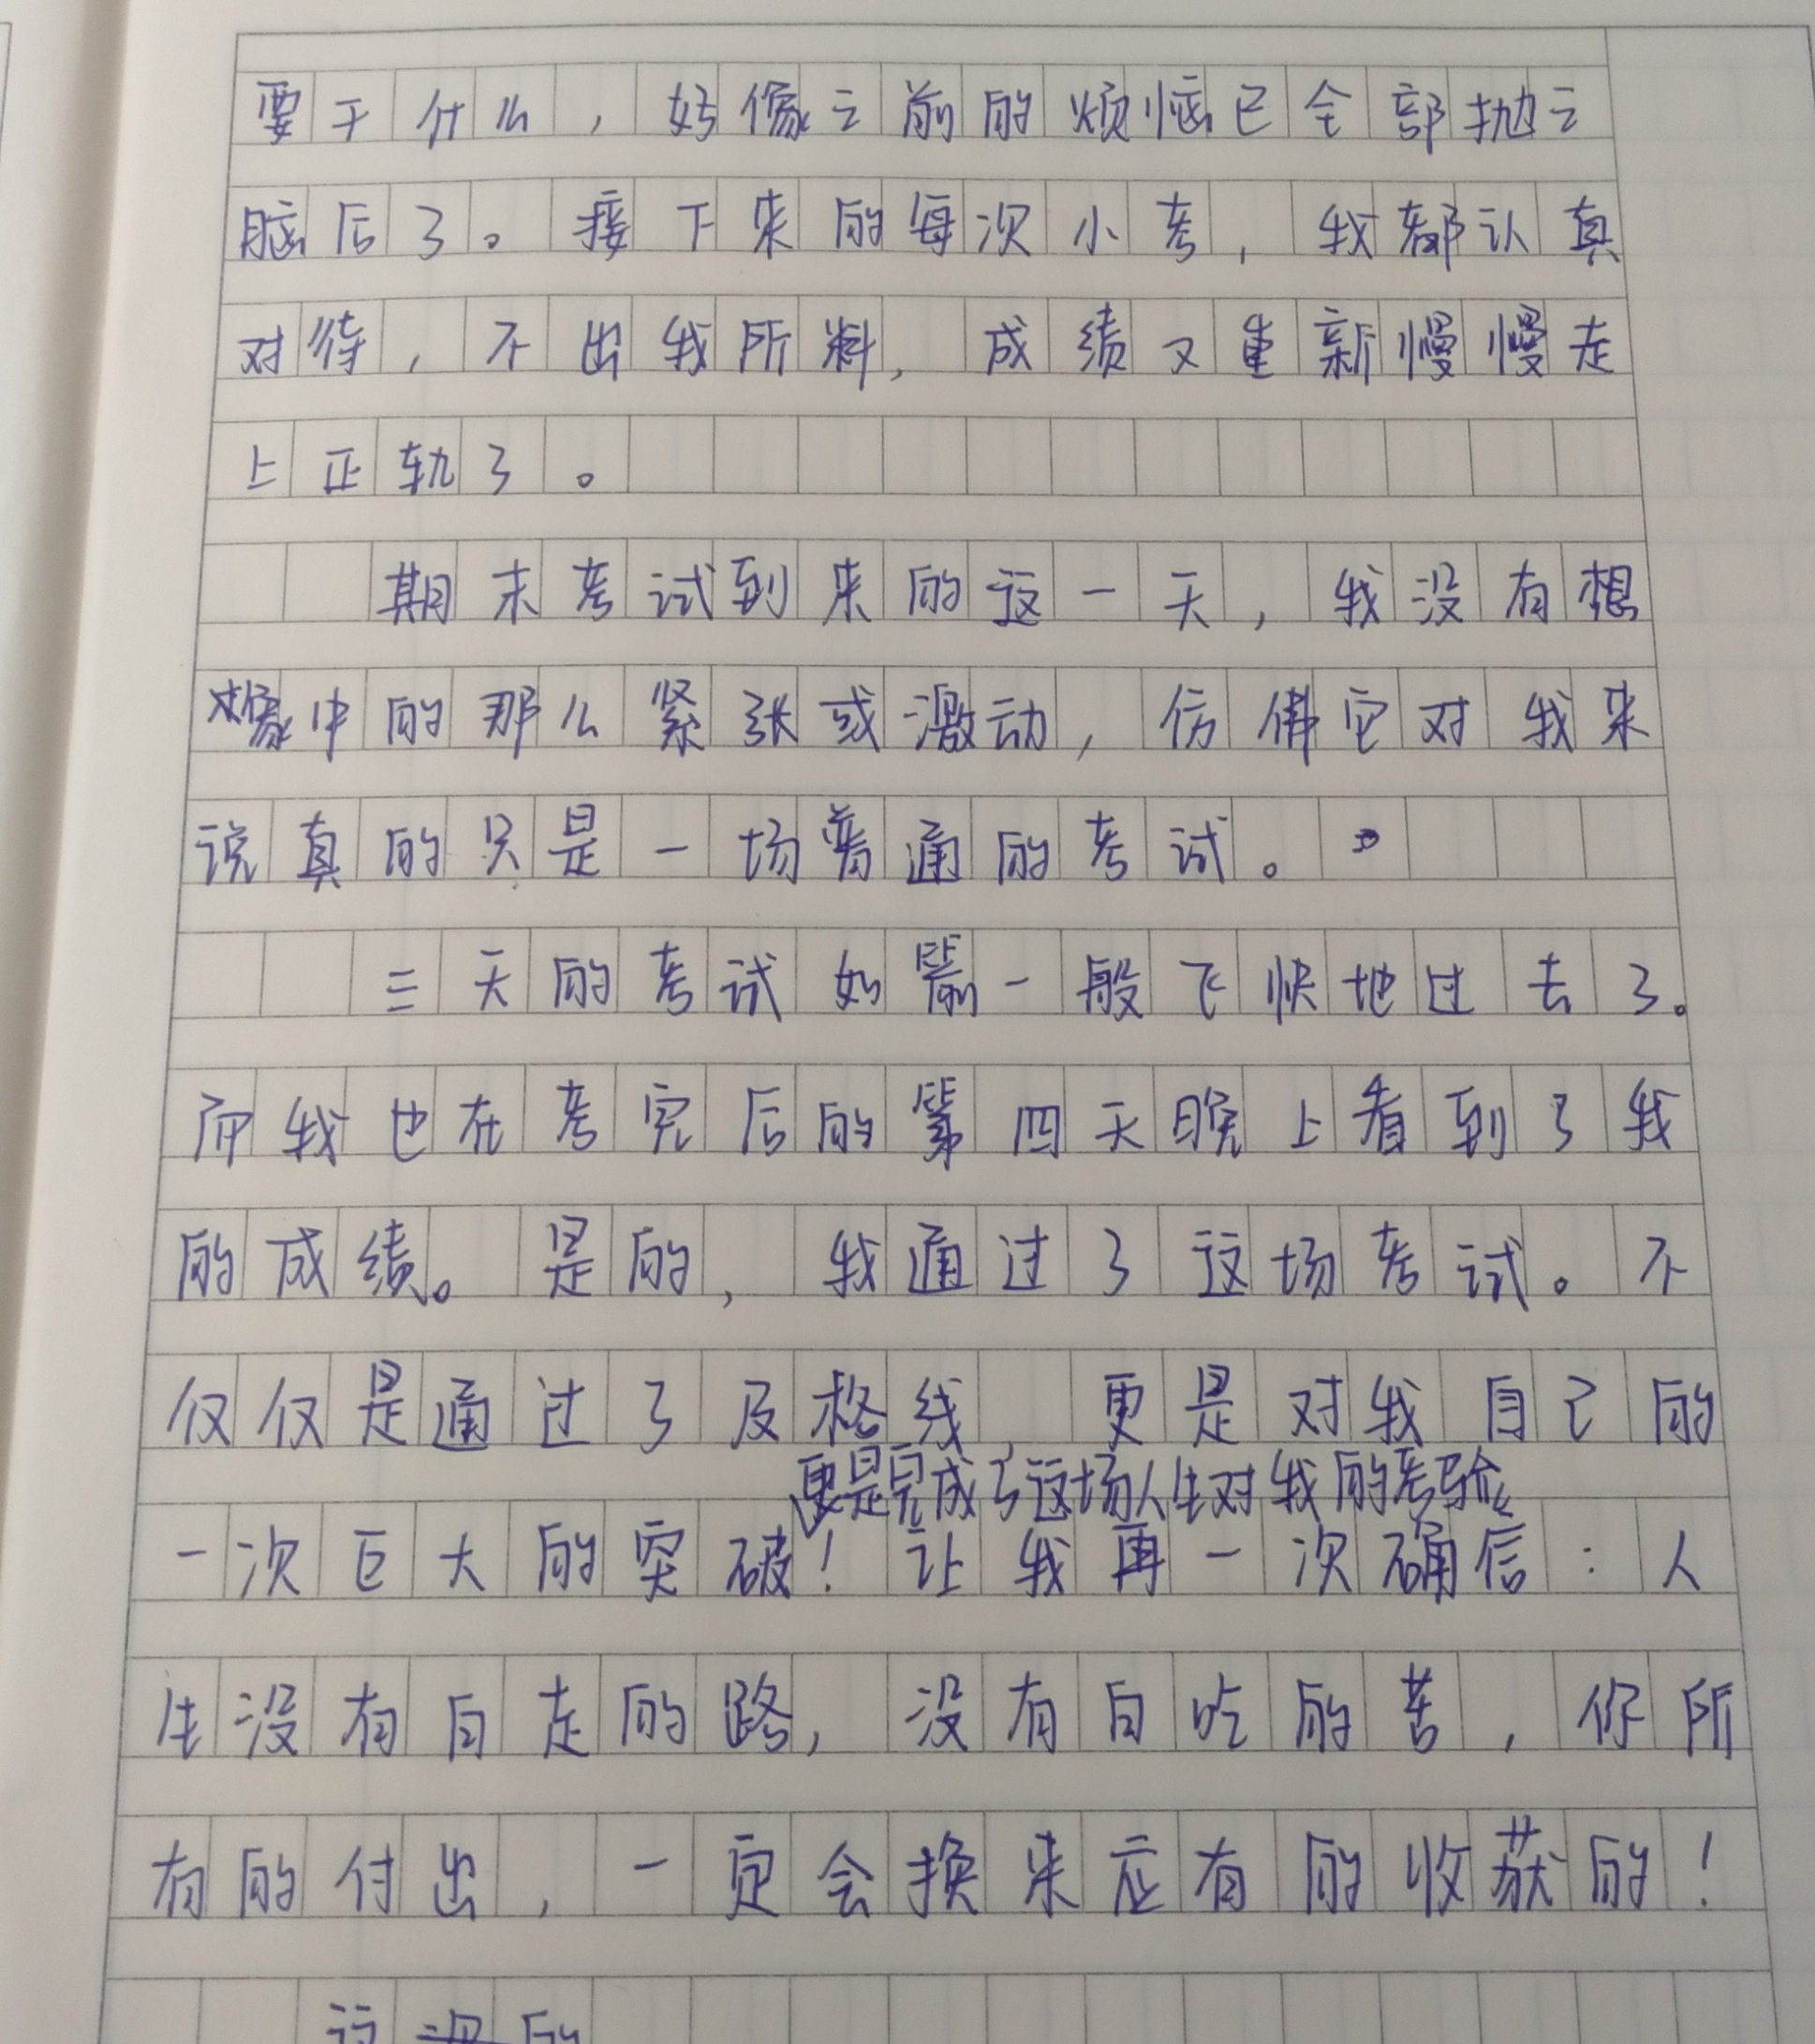 要干什么，好像之前的烦恼已全部抛之
脑后了。接下来的每次小考，我都认真
对待，不出我所料，成绩又重新慢慢走
上正轨了。
期末考试到来的这一天，我没有想
像中的那么紧张或激动，仿佛它对我来
说真的只是一场普通的考试。
三天的考试如箭一般飞快地过去了。
而我也在考完后的第四天晚上看到了我
的成绩。是的，我通过了这场考试。不
仅仅是通过了及格线，更是对我自己的
更是完成了这场人生对我的考验
一次巨大的突破！让我再一次确信：人
生没有白走的路，没有白吃的苦，你所
有的付出，一定会换来应有的收获的！